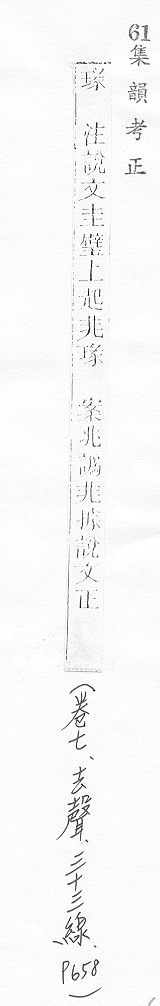 61集韻考正
瑑 注說文圭璧上起兆瑑 案兆譌兆據說文正
(卷七、去聲、三十三線、P658)